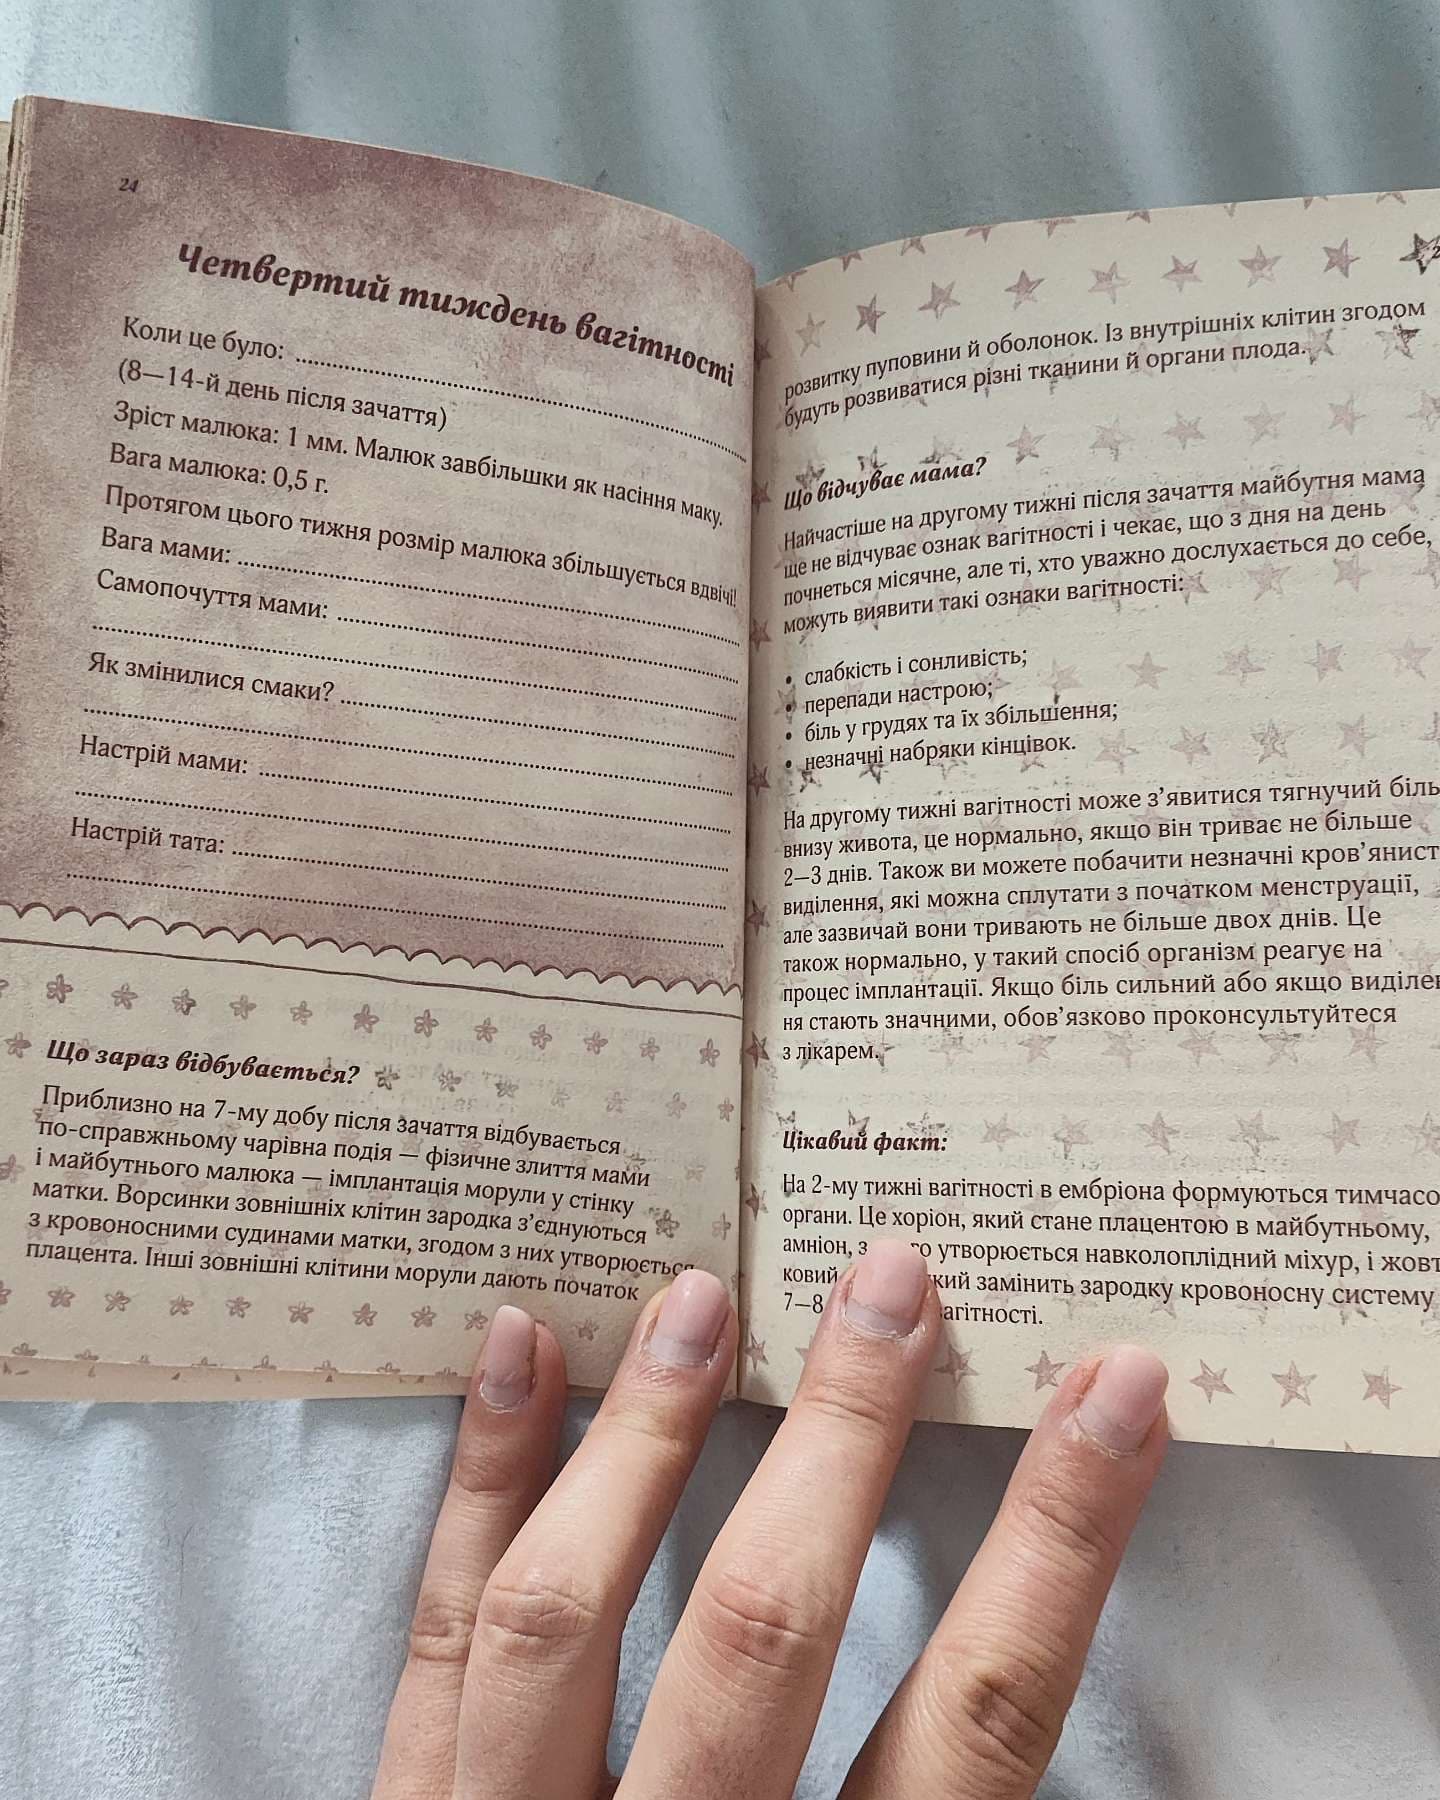 24
Четвертий тиждень вагітності
Коли це було: ........................................
(8—14-й день після зачаття)
Зріст малюка: 1 мм. Малюк завбільшки як насіння маку.
Вага малюка: 0,5 г.
Протягом цього тижня розмір малюка збільшується вдвічі!
Вага мами: ........................................
Самопочуття мами: ........................................
Як змінилися смаки? ........................................
Настрій мами: ........................................
Настрій тата: ........................................
Що зараз відбувається?
Приблизно на 7-му добу після зачаття відбувається
по-справжньому чарівна подія — фізичне злиття мами
і майбутнього малюка — імплантація морули у стінку
матки. Ворсинки зовнішніх клітин зародка з’єднуються
з кровоносними судинами матки, згодом з них утворюється
плацента. Інші зовнішні клітини морули дають початок
розвитку пуповини й оболонок. Із внутрішніх клітин згодом
будуть розвиватися різні тканини й органи плода.
Що відчуває мама?
Найчастіше на другому тижні після зачаття майбутня мама
ще не відчуває ознак вагітності і чекає, що з дня на день
почнеться місячне, але ті, хто уважно дослухається до себе,
можуть виявити такі ознаки вагітності:
• слабкість і сонливість;
• перепади настрою;
• біль у грудях та їх збільшення;
• незначні набряки кінцівок.
На другому тижні вагітності може з’явитися тягнучий біль
внизу живота, це нормально, якщо він триває не більше
2—3 днів. Також ви можете побачити незначні кров’янист
виділення, які можна сплутати з початком менструації,
але зазвичай вони тривають не більше двох днів. Це
також нормально, у такий спосіб організм реагує на
процес імплантації. Якщо біль сильний або якщо виділен
ня стають значними, обов’язково проконсультуйтеся
з лікарем.
Цікавий факт:
На 2-му тижні вагітності в ембріона формуються тимчасо
органи. Це хоріон, який стане плацентою в майбутньому,
амніон, з утворюється навколоплідний міхур, і жовт
ковий замінить зародку кровоносну систему
7—8 вагітності.